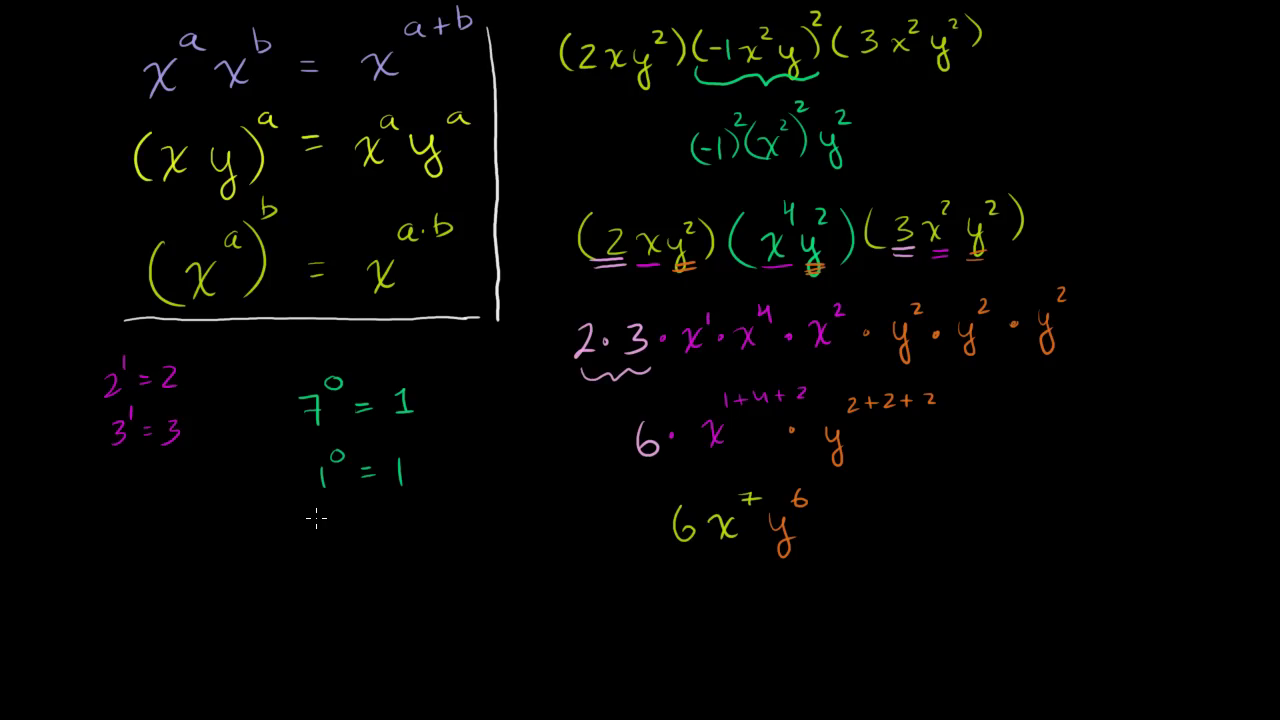 x^a x^b = x^{a+b}
(xy)^a = x^a y^a
(x^a)^b = x^{a·b}
2^1 = 2
3^1 = 3
7^0 = 1
1^0 = 1
(2xy^2)(-1x^2y)^2(3x^2y^2)
(-1)^2(x^2)^2y^2
(2xy^2)(x^4y^2)(3x^2y^2)
2·3·x^1·x^4·x^2·y^2·y^2·y^2
6·x^{1+4+2}·y^{2+2+2}
6x^7y^6